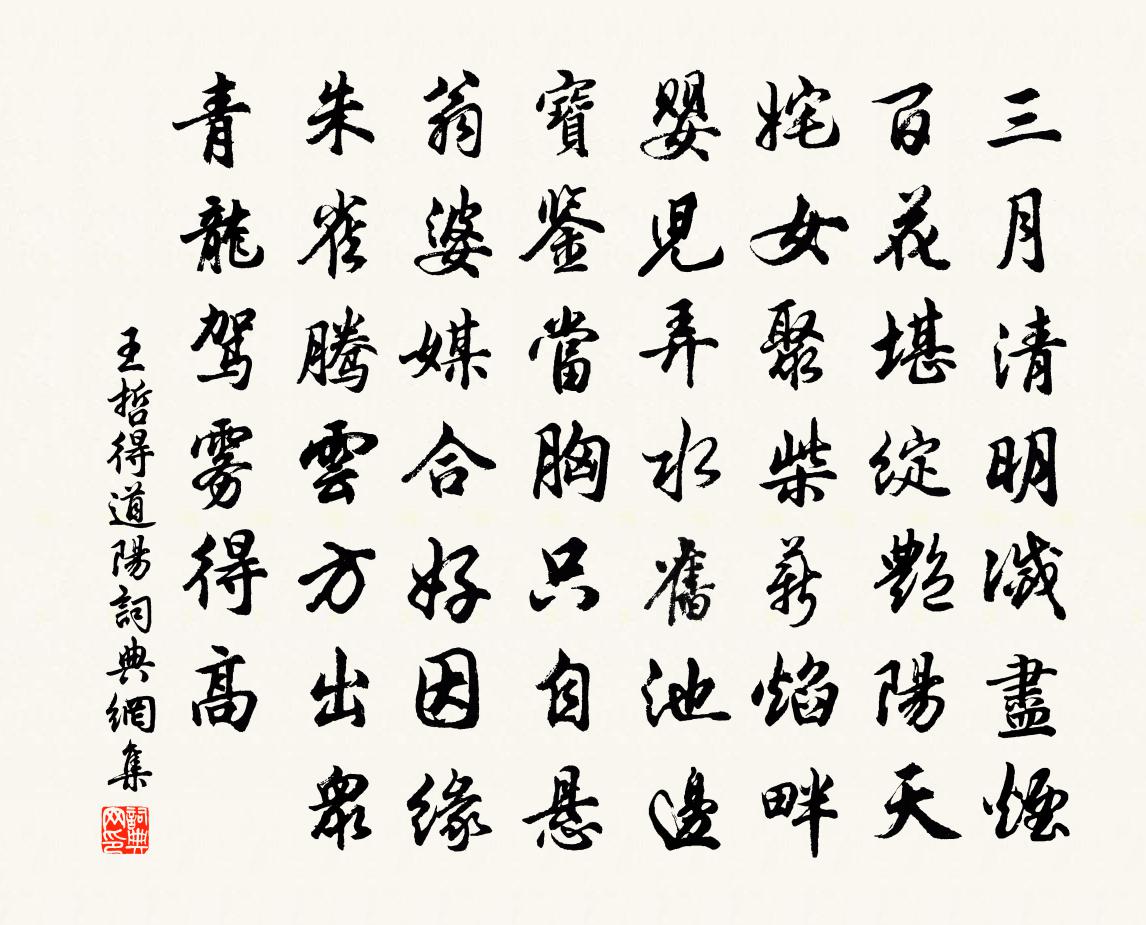 三月清明滅盡煙
百花堪綻艷陽天
姹女聚柴薪焰畔
嬰兒弄水舊池邊
寶鑒當胸只自懸
翁婆媒合好因緣
朱雀騰雲方出眾
青龍駕霧得高
王哲得道陽詞典網集
詞典網印